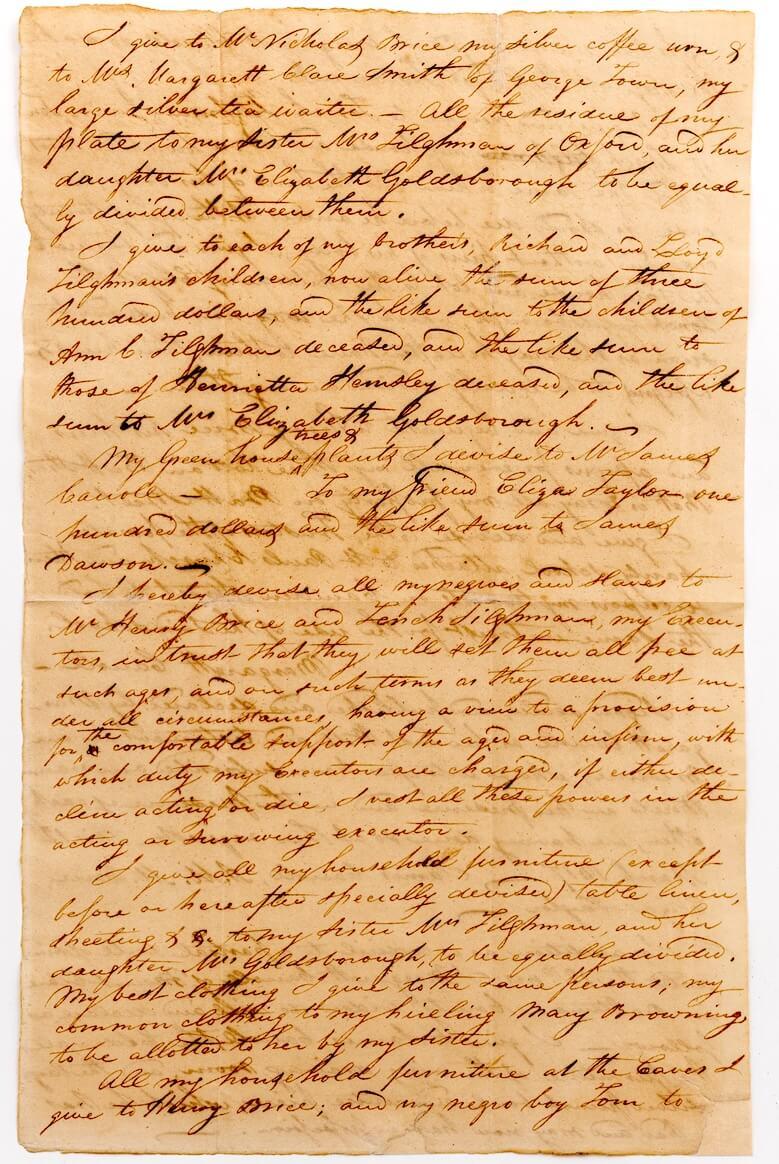 I give to Mr Nicholas Brice my silver coffee urn &
to Mrs. Margarett Clare Smith of George Town, my
large silver tea waiter. — All the residue of my
plate to my sister Mrs Tilghman of Oxford, and her
daughter Mrs Elizabeth Goldsborough to be equal-
ly divided between them.
I give to each of my brothers, Richard and Lloyd
Tilghman's children, now alive the sum of three
hundred dollars, and the like sum to the children of
Ann C. Tilghman deceased, and the like sum to
those of Henrietta Hemsley deceased, and the like
sum to Mrs Elizabeth Goldsborough.
trees &
My Green house plants I devise to Mr James
Carroll — To my friend Eliza Taylor one
hundred dollars and the like sum to James
Dawson. —
I hereby devise all my negroes and slaves to
Mr Henry Brice and Tench Tilghman, my Execu-
tors, in trust that they will set them all free at
such ages, and on such terms as they deem best un-
der all circumstances, having a view to a provision
for the comfortable support of the aged and infirm, with
which duty my Executors are charged, if either de-
cline acting or die, I vest all these powers in the
acting or surviving executor.
I give all my household furniture (except
before or hereafter specially devised) table linen,
sheeting & to my sister Mrs Tilghman, and her
daughter Mrs Goldsborough, to be equally divided.
My best clothing I give to the same persons; my
common clothing to my hireling Mary Browning,
to be allotted to her by my sister.
All my household furniture at the Caves I
give to Henry Brice; and my negro boy Tom to